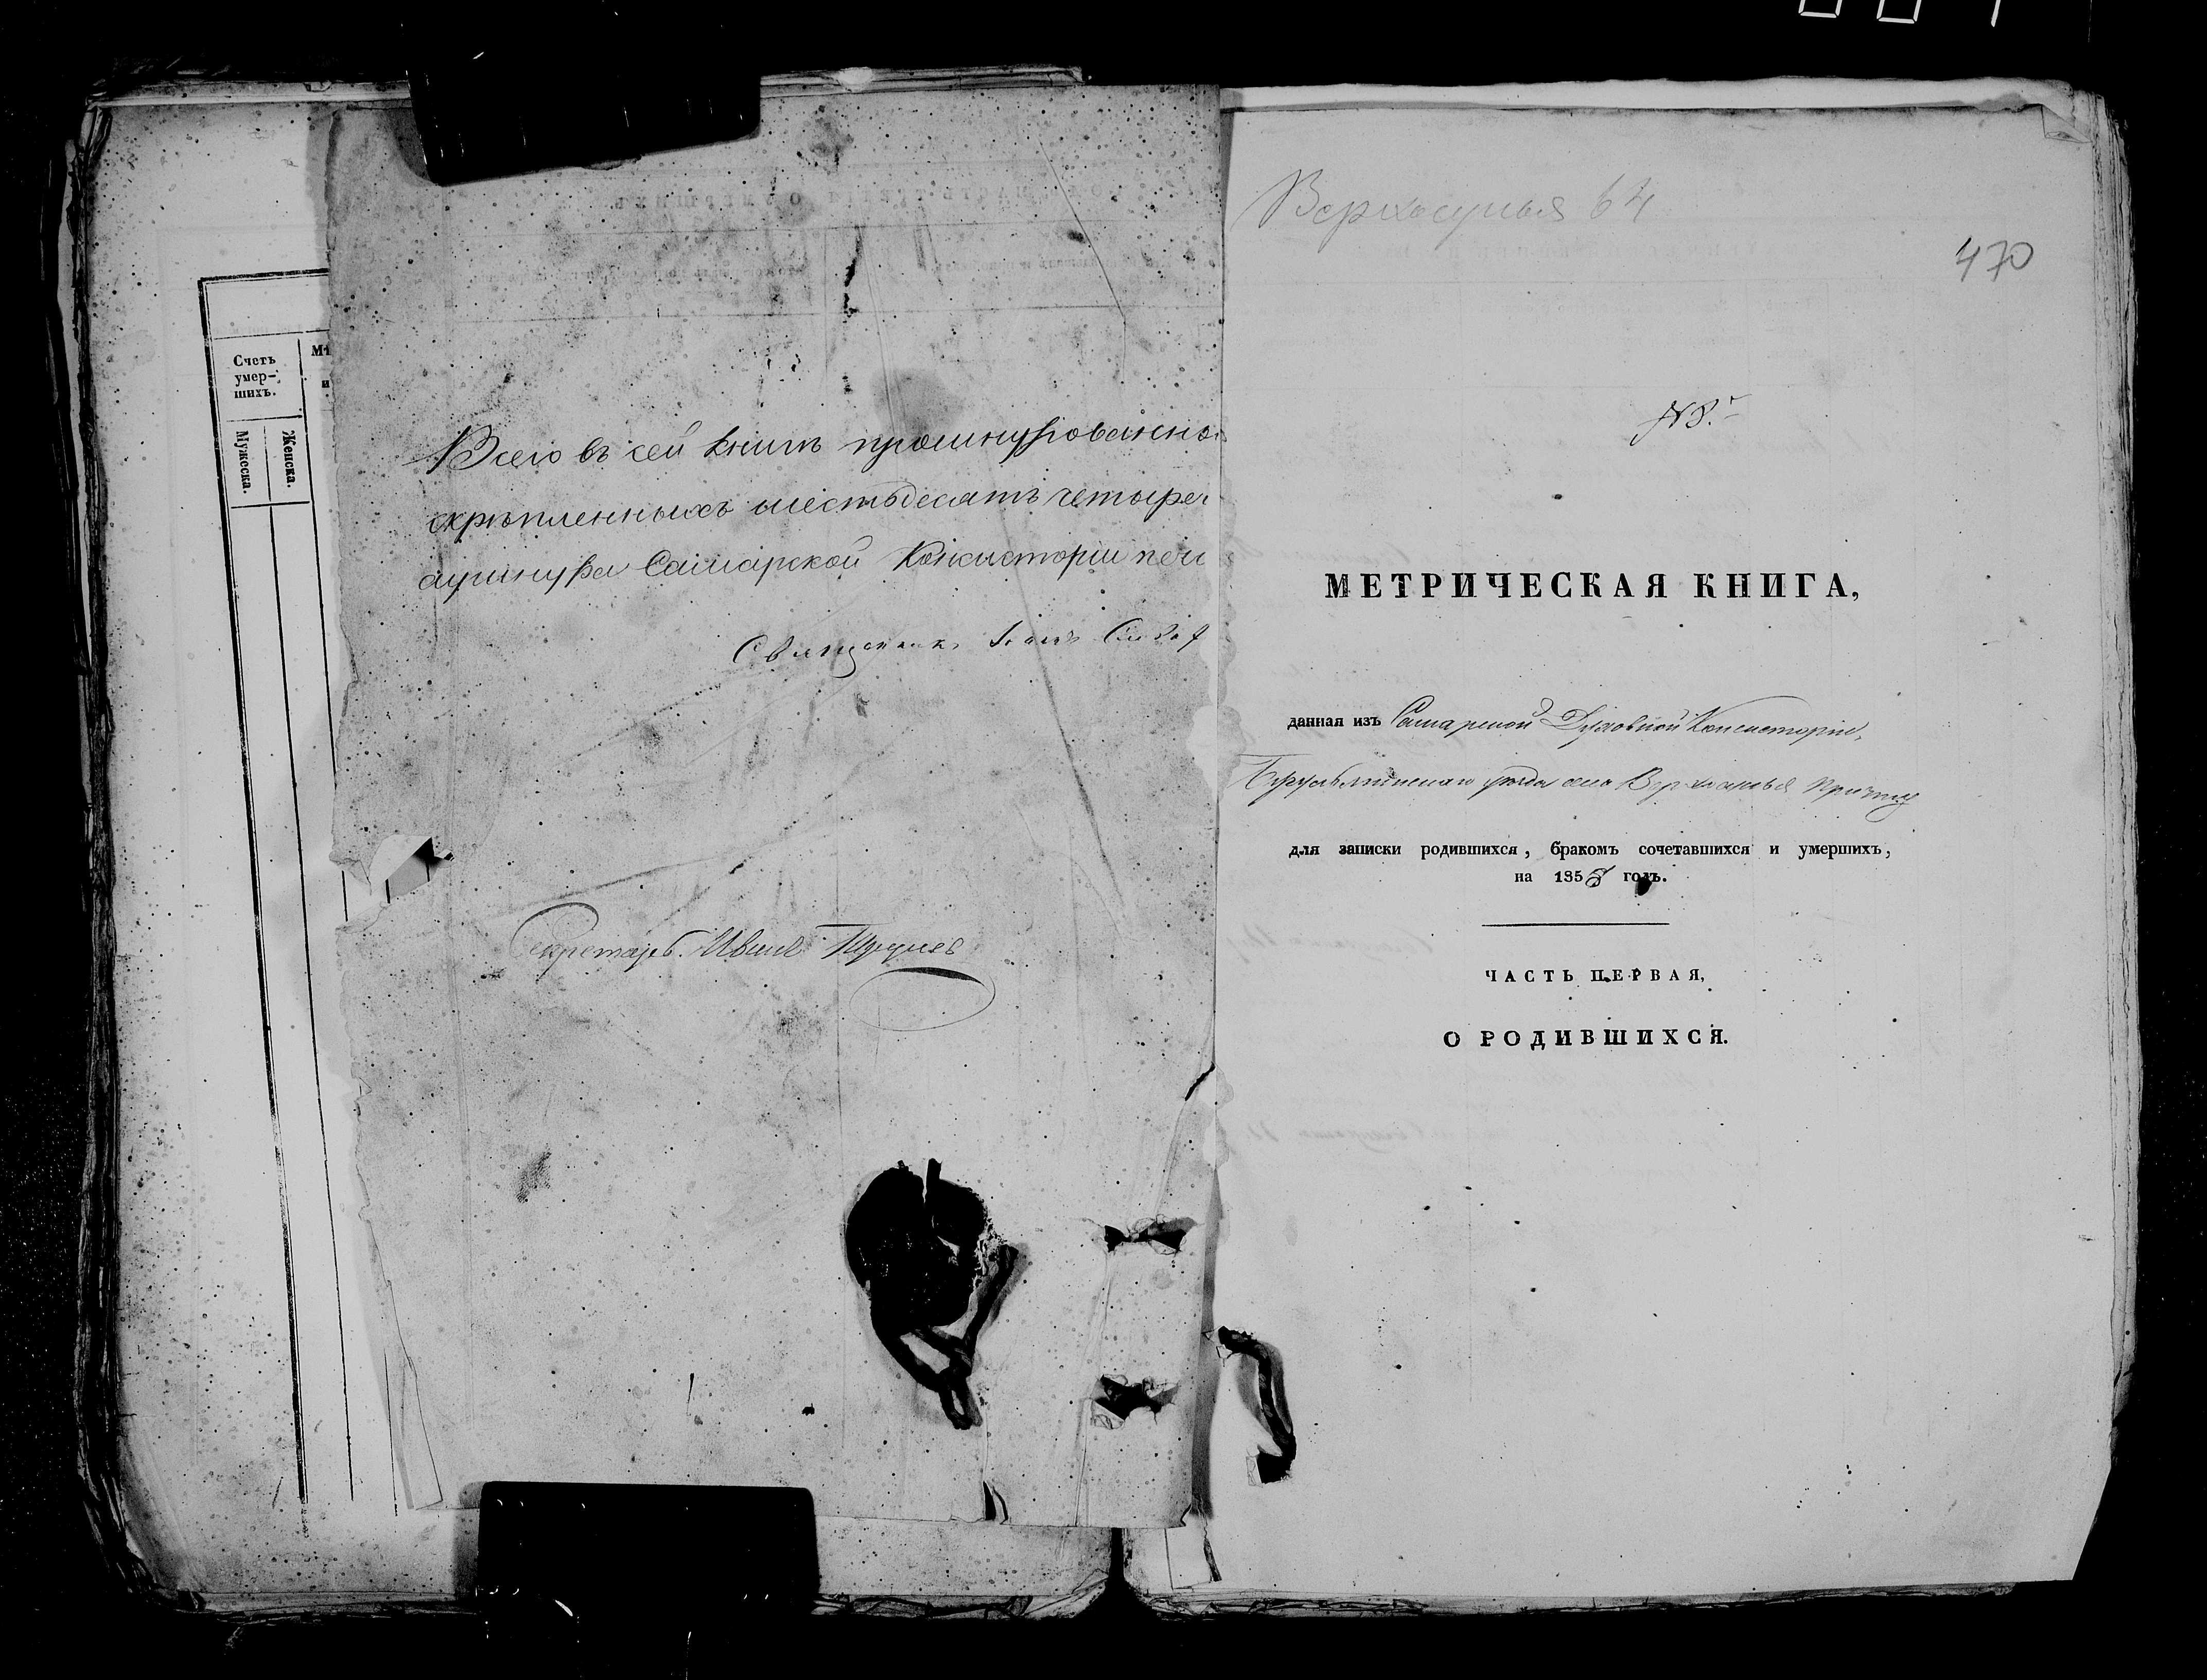 Счетъ
умер-
шихъ.
Мужеска.
Женска.
Всего въ сей книгѣ прошнурованно
скрѣпленныхъ шестьдесятъ четыре
а у шнура Самарской Консисторіи печ
Священникъ
Секретарь Иванъ
Верхосулья 64
470
№ 8.
МЕТРИЧЕСКАЯ КНИГА,
данная изъ Самарской Духовной Консисторіи,
Бугурусланскаго уѣзда села причту
для записки родившихся, бракомъ сочетавшихся и умершихъ,
на 1855 годъ.
ЧАСТЬ ПЕРВАЯ,
О РОДИВШИХСЯ.